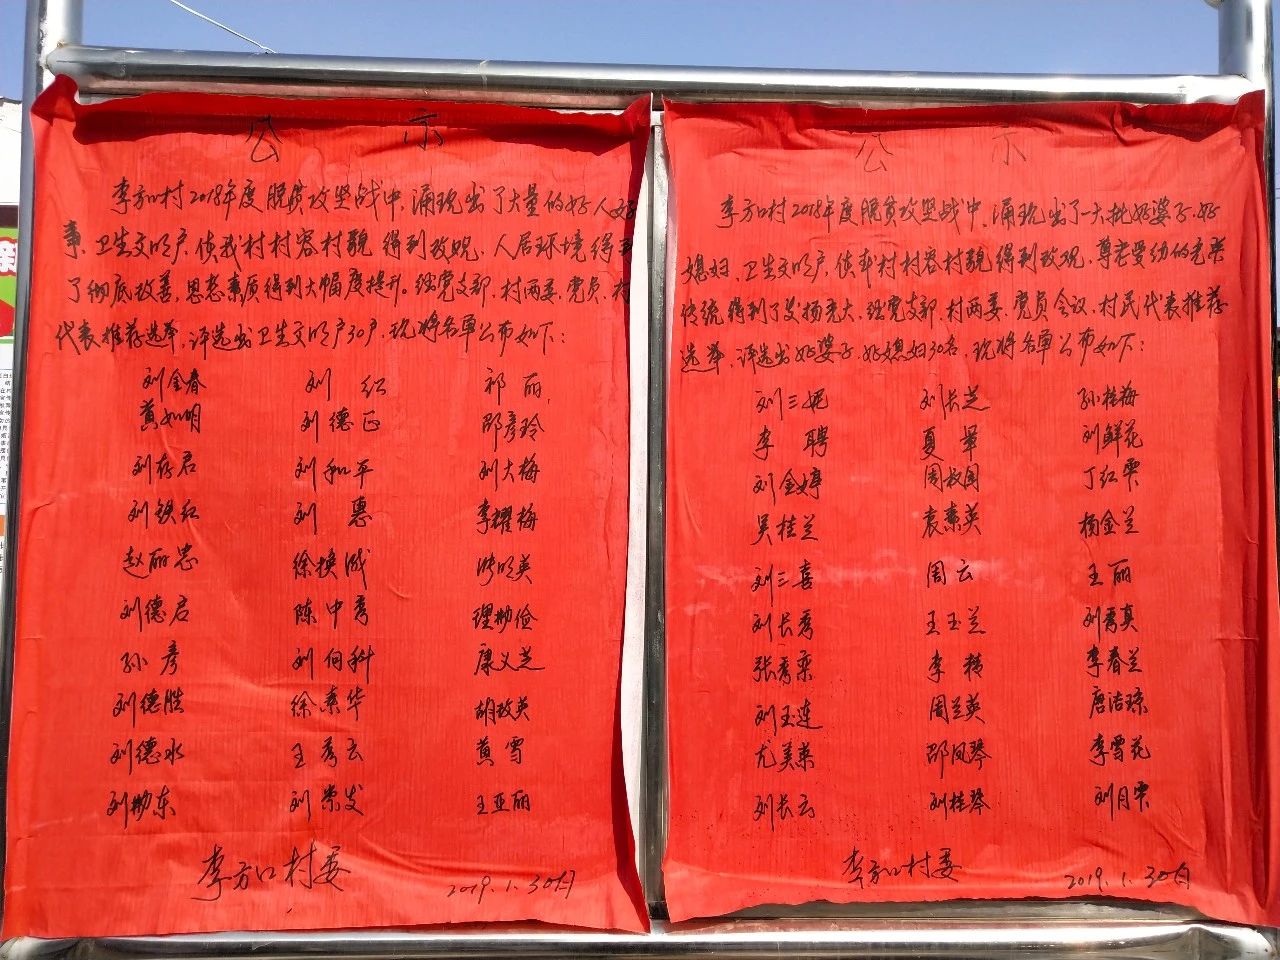 公 示
李方口村2018年度脱贫攻坚战中,涌现出了大量的好人好
事、卫生文明户,使我村村容村貌得到改观,人居环境得到
了彻底改善,思想素质得到大幅度提升。经党支部、村两委、党员、村
代表推荐选举,评选出卫生文明户30户,现将名单公布如下:
刘金春 刘红 祁丽
黄如明 刘德正 邵彦玲
刘存君 刘和平 刘大梅
刘铁红 刘惠 李耀梅
赵丽忠 徐换成 许明英
刘德君 陈中秀 理勤俭
孙彦 刘向科 康义芝
刘德胜 徐素华 胡改英
刘德水 王秀云 黄雪
刘勤东 刘崇发 王亚丽
李方口村委 2019.1.30日
公 示
李方口村2018年度脱贫攻坚战中,涌现出了一大批好婆子、好
媳妇、卫生文明户,使本村村容村貌得到改观,尊老爱幼的光荣
传统得到了发扬光大,经党支部、村两委、党员会议,村民代表推荐
选举,评选出好婆子、好媳妇30名,现将名单公布如下:
刘三妮 刘长芝 孙桂梅
李聘 夏翠 刘鲜花
刘金婷 周叔 丁红雫
吴桂兰 袁素英 杨金兰
刘三喜 周云 王丽
刘长秀 王玉兰 刘秀真
张秀荣 李转 李春兰
刘玉连 周兰英 唐洁琼
尤美荣 邵凤琴 李雪花
刘长云 刘桂琴 刘月雫
李方口村委 2019.1.30日